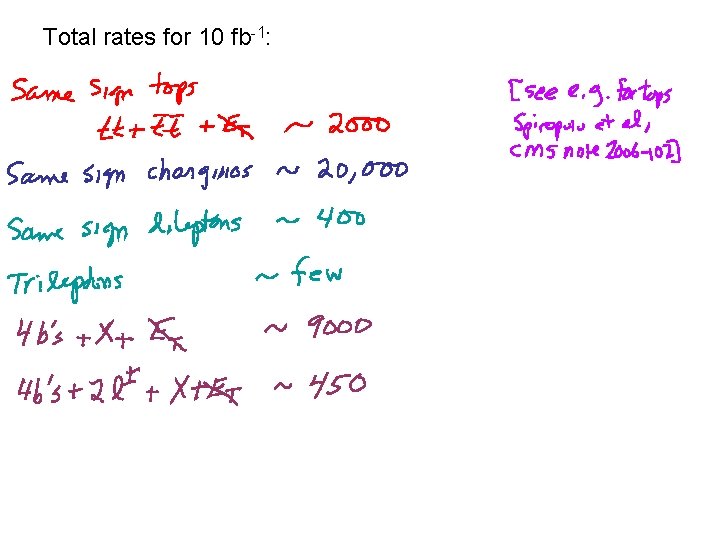 Total rates for 10 fb-1:
Same sign tops
tt + t̅t̅ + E̸T ~ 2000
Same sign charginos ~ 20,000
Same sign dileptons ~ 400
Trileptons ~ few
4b's + X + E̸T ~ 9000
4b's + 2l± + X + E̸T ~ 450
[see e.g. for tops
Spiropulu et al,
CMS note 2006-102]